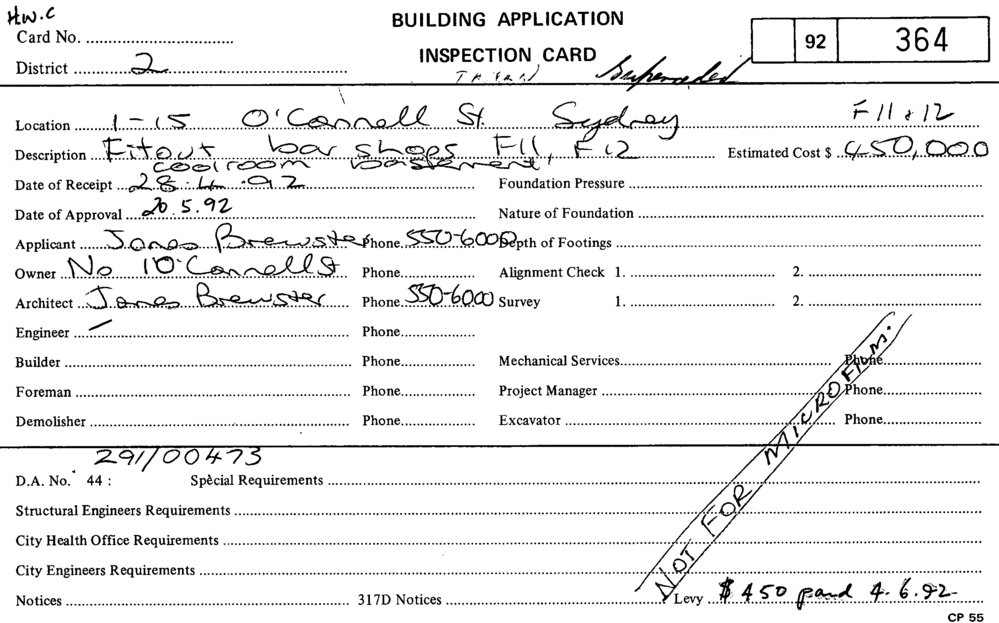 H.W.C
BUILDING APPLICATION
Card No.
92 364
INSPECTION CARD
District 2
Superseded
Location 1-15 O'Connell St. Sydney F11 & 12
Description Fitout bar shops F11, F12 Estimated Cost $ 450,000
coolroom basement
Date of Receipt 28.4.92 Foundation Pressure
Date of Approval 20.5.92 Nature of Foundation
Applicant Jones Brewster Phone 550-6000 Depth of Footings
Owner No 1 O'Connell St Phone Alignment Check 1. 2.
Architect Jones Brewster Phone 550-6000 Survey 1. 2.
Engineer Phone
Builder Phone Mechanical Services Phone
Foreman Phone Project Manager Phone
Demolisher Phone Excavator Phone
NOT FOR MICROFILM.
291/00473
D.A. No. 44 : Special Requirements
Structural Engineers Requirements
City Health Office Requirements
City Engineers Requirements
Notices 317D Notices Levy $450 paid 4.6.92
CP 55